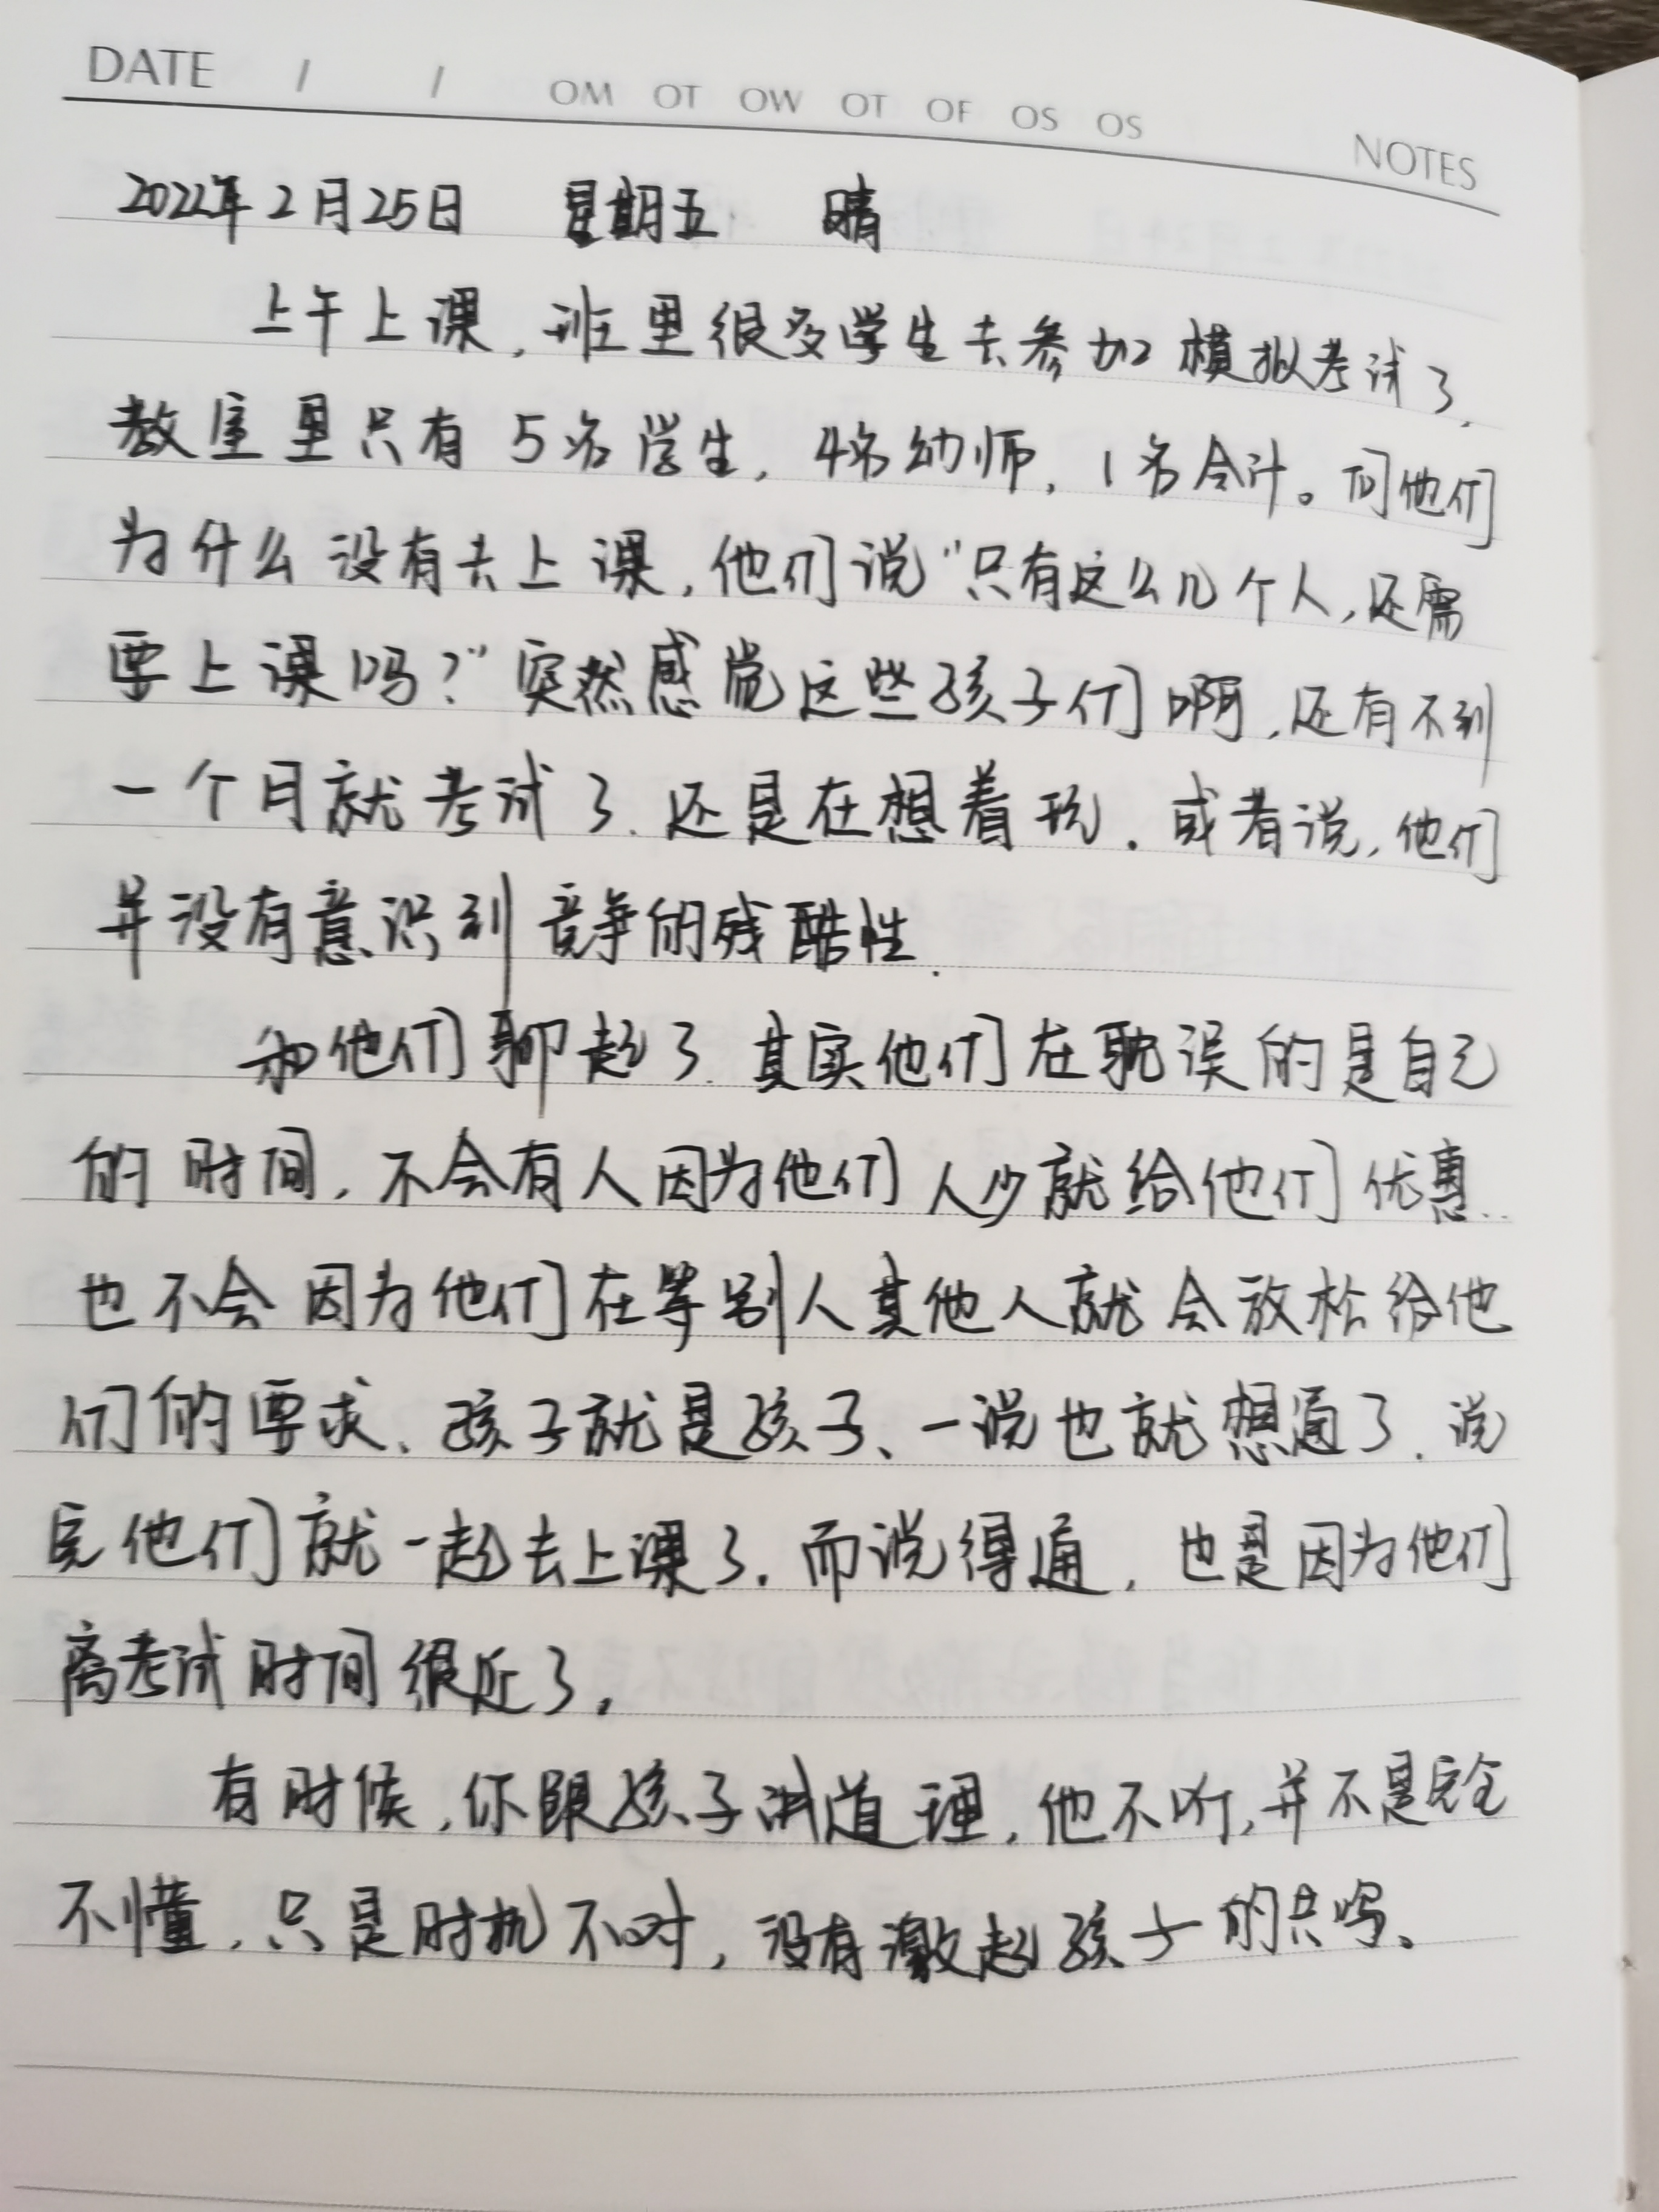 DATE / / OM OT OW OT OF OS OS NOTES
2022年2月25日 星期五 晴
上午上课，班里很多学生去参加模拟考试了，
教室里只有5名学生，4名幼师，1名会计。问他们
为什么没有去上课，他们说“只有这么几个人，还需
要上课吗？”突然感觉这些孩子们啊，还有不到
一个月就考试了.还是在想着玩.或者说，他们
并没有意识到竞争的残酷性.
和他们聊起了.其实他们在耽误的是自己
的时间，不会有人因为他们人少就给他们优惠..
也不会因为他们在等别人其他人就会放松给他
们的要求、孩子就是孩子、一说也就想通了.说
完他们就一起去上课了.而说得通，也是因为他们
离考试时间很近了.
有时候，你跟孩子讲道理，他不听，并不是完全
不懂，只是时机不对，没有激起孩子的共鸣。